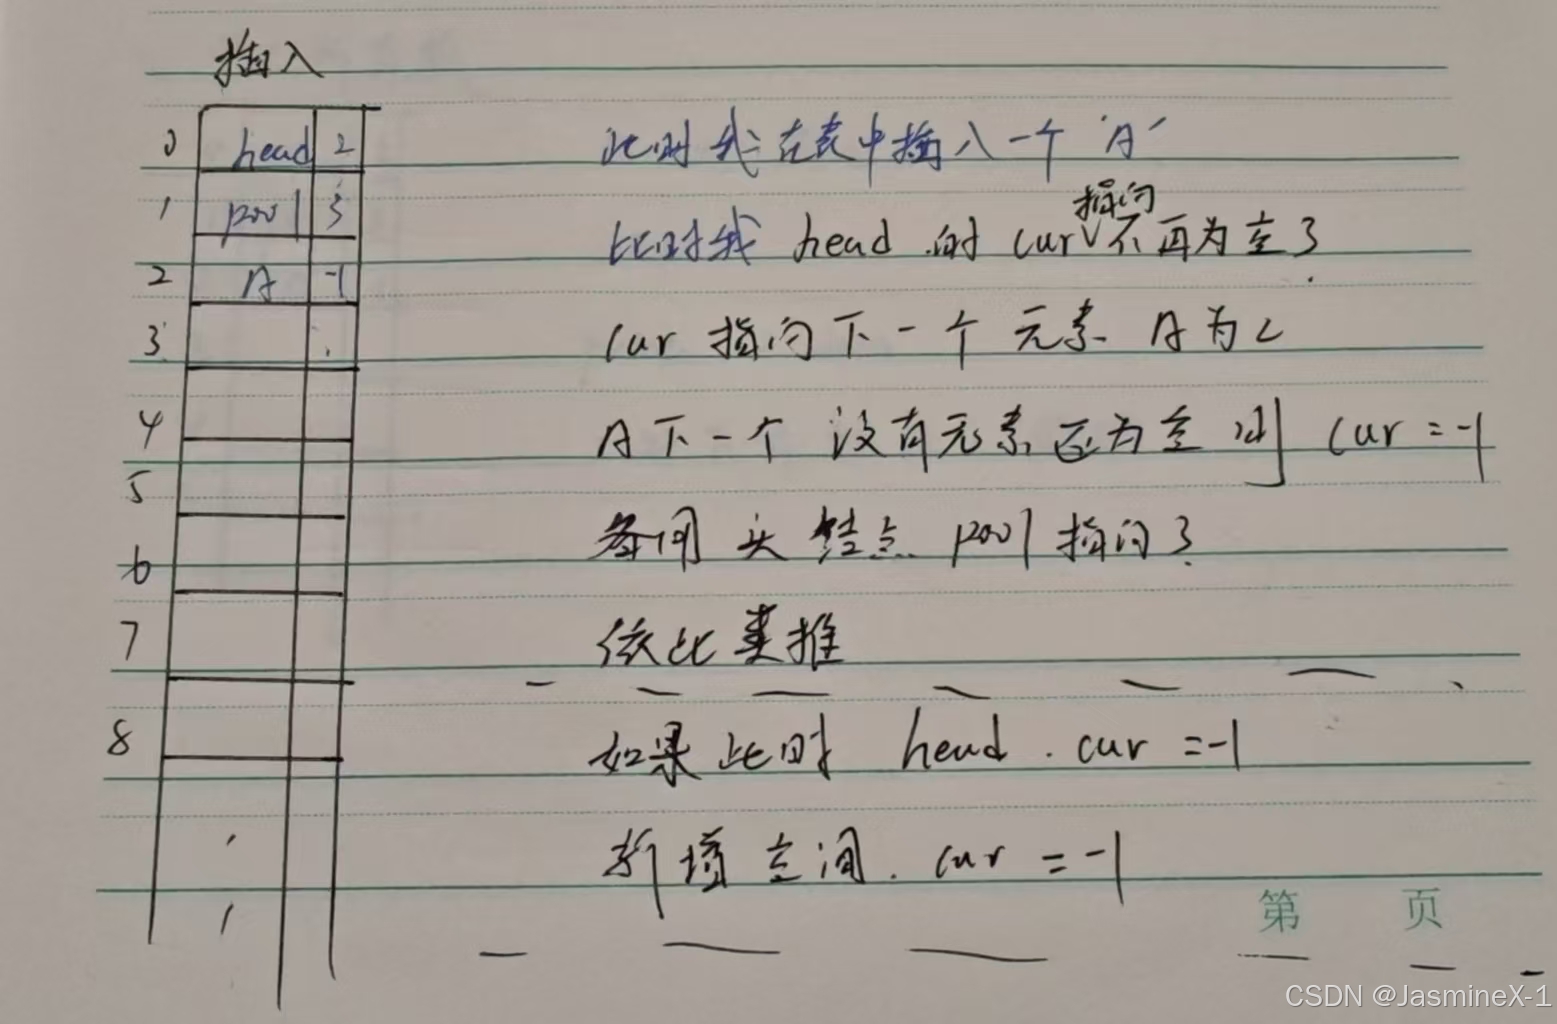 插入
0 head 2
1 pool 3
2 A -1
3
4
5
6
7
8
此时我在表中插入一个'A'
此时我 head 的 cur 指向不再为空了.
cur 指向下一个元素 A 为 2
A下一个 没有元素还为空 则 cur = -1
备用 头结点 pool 指向 3
依此类推
如果此时 head . cur = -1
新增空间. cur = -1
第 页
CSDN @JasmineX-1